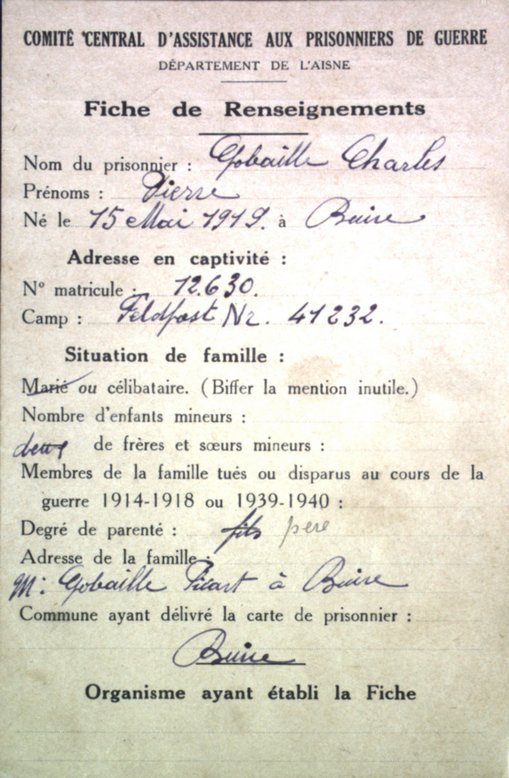 COMITÉ CENTRAL D'ASSISTANCE AUX PRISONNIERS DE GUERRE
DÉPARTEMENT DE L'AISNE
Fiche de Renseignements
Nom du prisonnier : Gobaille Charles
Prénoms : Pierre
Né le 15 Mai 1919. à Buire
Adresse en captivité :
N° matricule : 12.630.
Camp : Feldpost Nr. 41232.
Situation de famille :
Marié ou célibataire. (Biffer la mention inutile.)
Nombre d'enfants mineurs :
deux de frères et sœurs mineurs :
Membres de la famille tués ou disparus au cours de la
guerre 1914-1918 ou 1939-1940 :
Degré de parenté : fils père
Adresse de la famille :
M: Gobaille Picart à Buire
Commune ayant délivré la carte de prisonnier :
Buire
Organisme ayant établi la Fiche